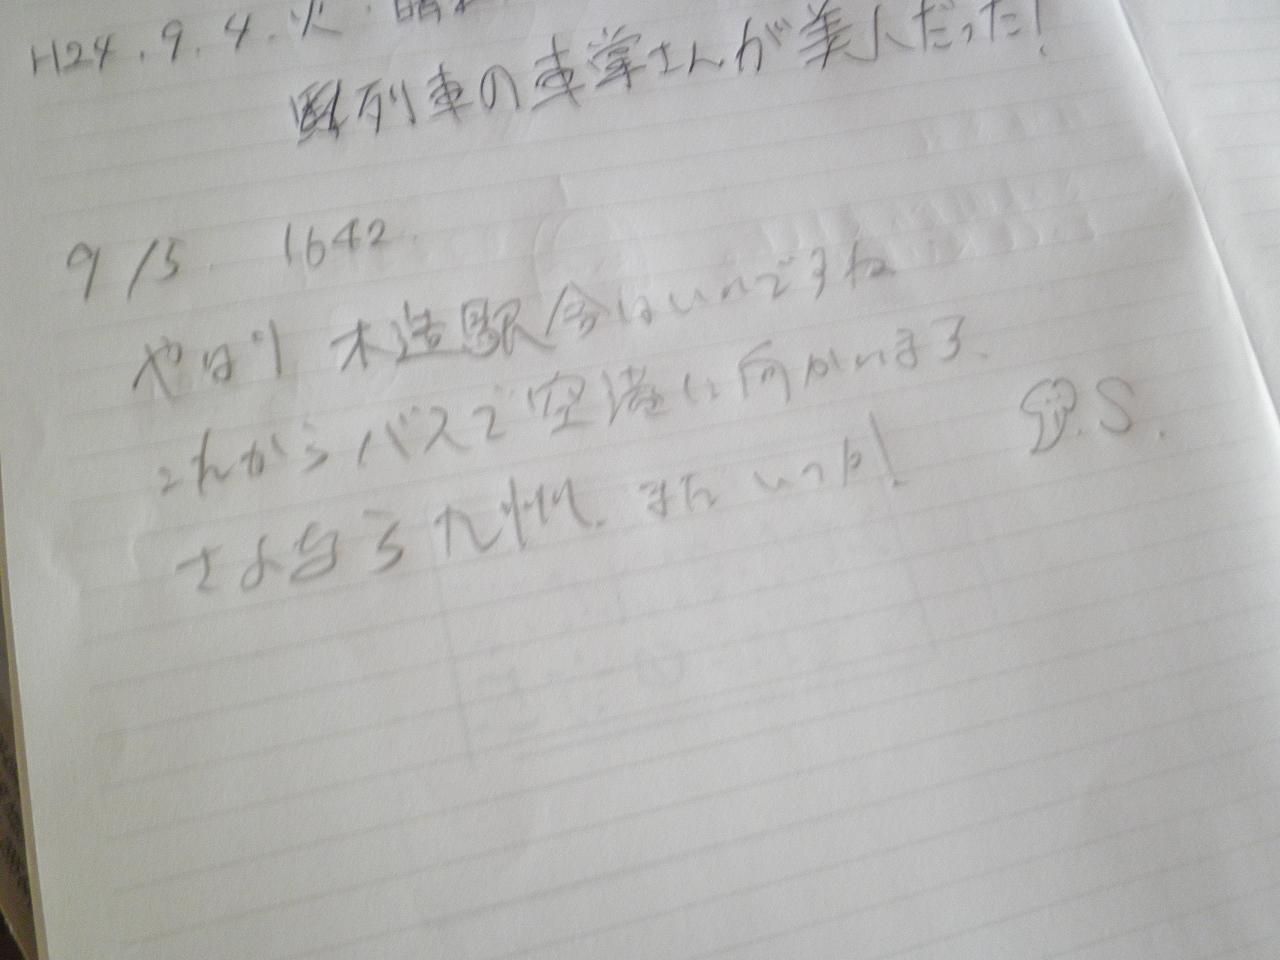 H24.9.4.火.晴れ
列車の車掌さんが美人だった!
9/5. 1642.
やはり 木造駅舎はいいですね
これからバスで空港に向かいます、
さよなら九州. またいつか! S.